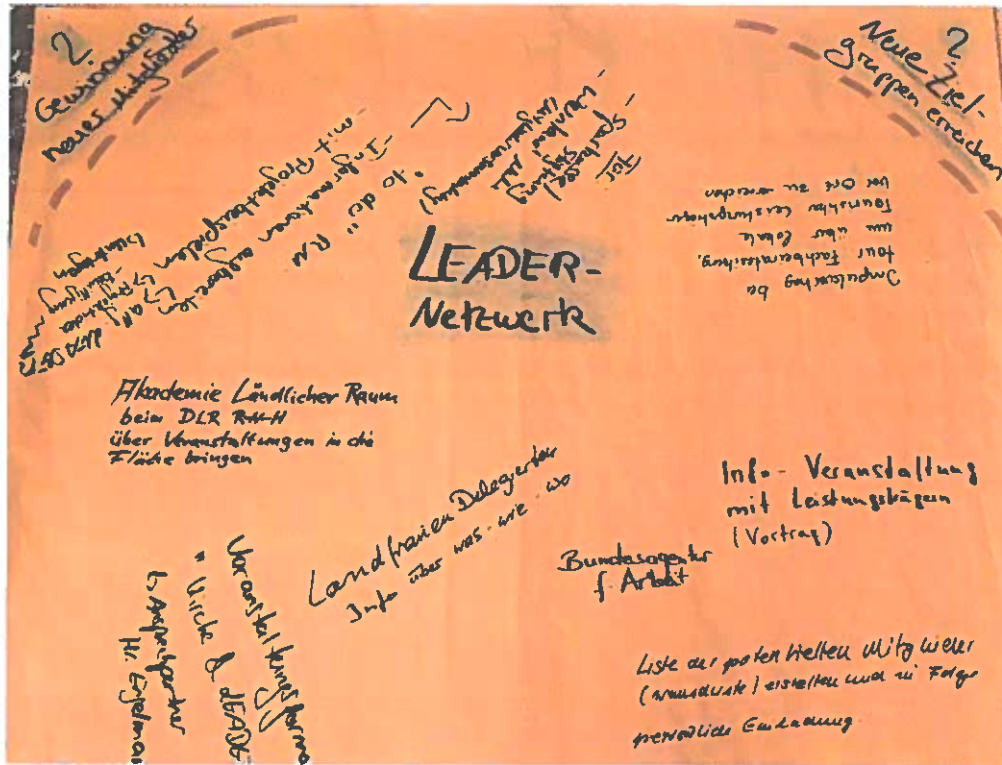 ?
Gewinnung
neuer Mitglieder
?
Neue Ziel-
gruppen erreichen
LEADER-
Netzwerk
"to do's"
- Informationen aufbereiten
- mit Projektbeispielen
Für:
Sparkasse/
Stiftung
Impulsvortrag bei
tour Fachbeiratssitzung,
um über lokale
Touristiker Leistungsträger
vor Ort zu erreichen
Akademie Ländlicher Raum
beim DLR R-N-H
über Veranstaltungen in die
Fläche bringen
Landfrauen Delegierten
Info über was - wie - wo
Info - Veranstaltung
mit Leistungsträgern
(Vortrag)
Bundesagentur
f. Arbeit
Veranstaltungsforma
" Kirche & LEADE
↳ Ansprechpartner
Hr. Engelman
Liste der potentiellen Mitglieder
(Wunschliste) erstellen und in Folge
persönliche Einladung